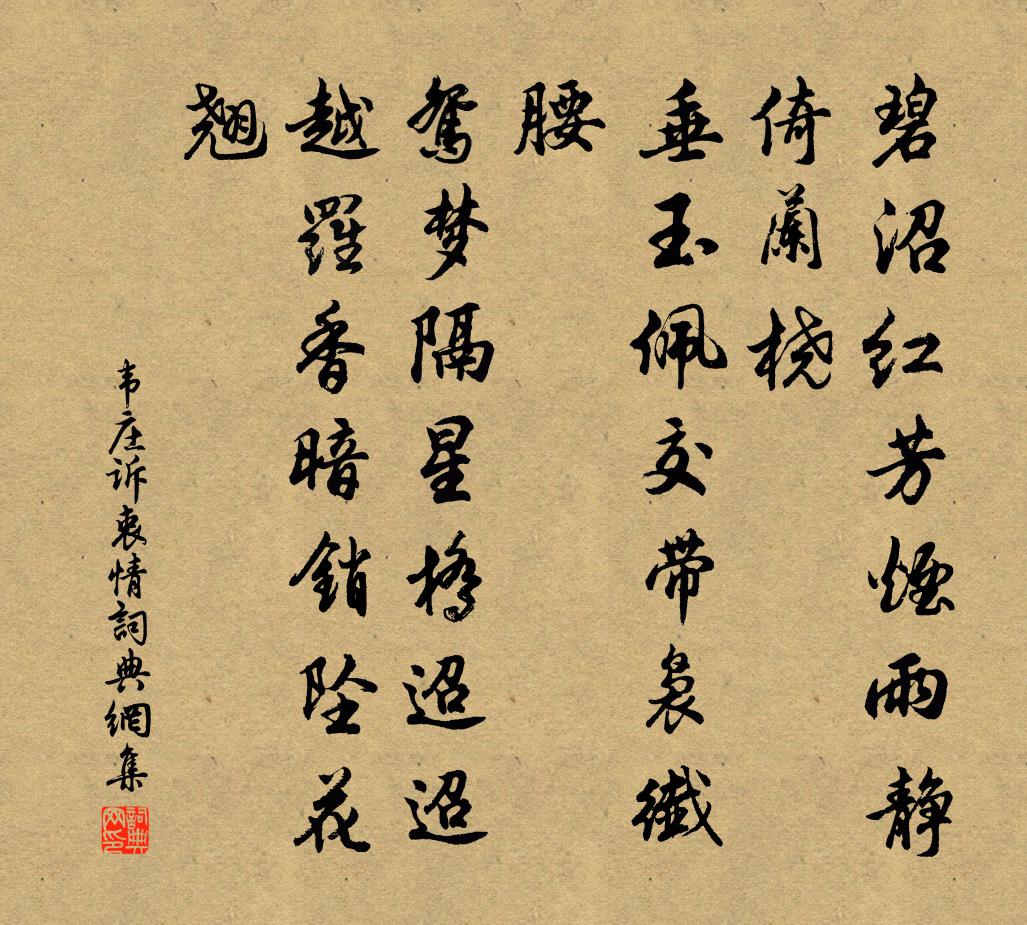 碧沼红芳煙雨静
倚蘭桡
垂玉佩交带裊纖
腰
鴛梦隔星橋迢迢
越羅香暗銷坠花
翘
韦庄诉衷情詞典網集
詞典网印